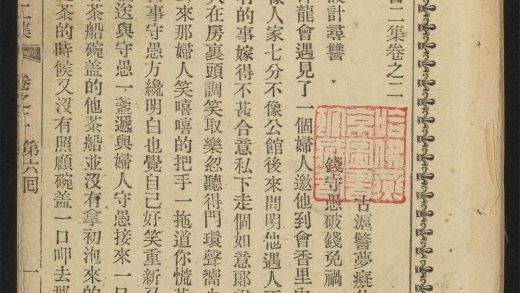 二集卷之二
古滬警夢癡
設計尋讐 錢守愚破錢免禍
龍會遇見了一個婦人邀他到會香里
像人家七分不像公館後來問明他遇人
有的事嫁得不甚合意私下走個如意郎
在房裏頭調笑取樂忽聽得門環聲嚮
來那婦人笑嘻嘻的把手一拖道你慌甚
事守愚方纔明白也覺自己好笑重新
送與守愚一盞遞與婦人守愚接來一口
茶船碗盖的他茶船並沒有拿初泡來的
茶的時候又沒有照顧碗盖一口呷去那
二集 卷之二 第六回 一